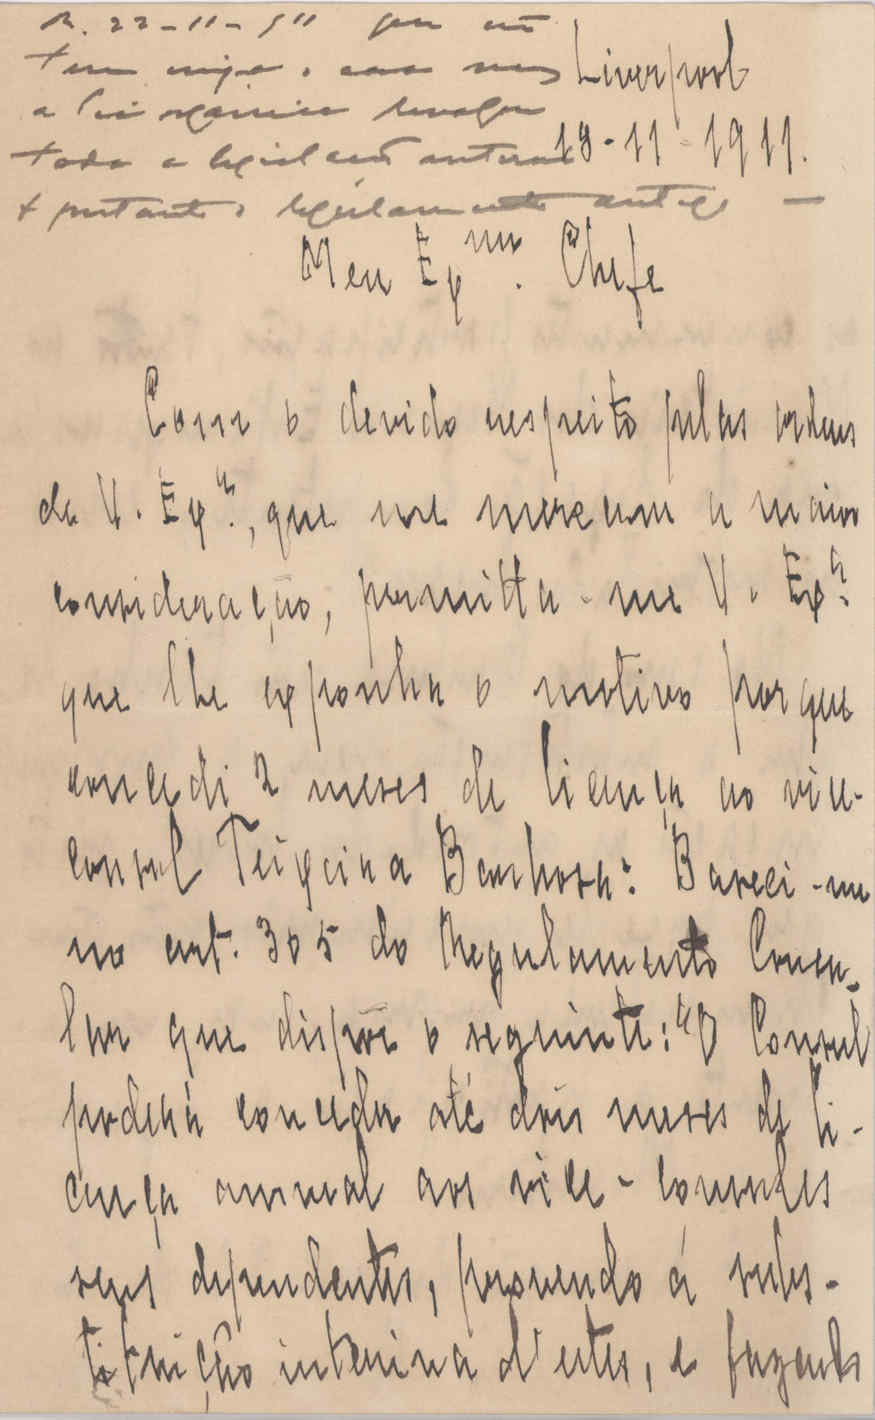 R. 22-11-911 que não
tem
a lei organica revogou
toda a legislação anterior
e portanto o regulamento antigo —
Liverpool
18-11-1911.
Meu Exmo. Chefe
Com o devido respeito pelas ordens
de V. Exª., que me merecem a maior
consideração, permitta-me V. Exª.
que lhe exponha o motivo porque
concedi 2 meses de licença ao vice-
consul Teixeira Barbosa: Baseei-me
no art. 305 do Regulamento Consu-
lar que dispõe o seguinte: "O Consul
poderá conceder até dois meses de li-
cença annual aos vice-consules
seus dependentes, provendo á subs-
tituição interina d'estes, e fazendo